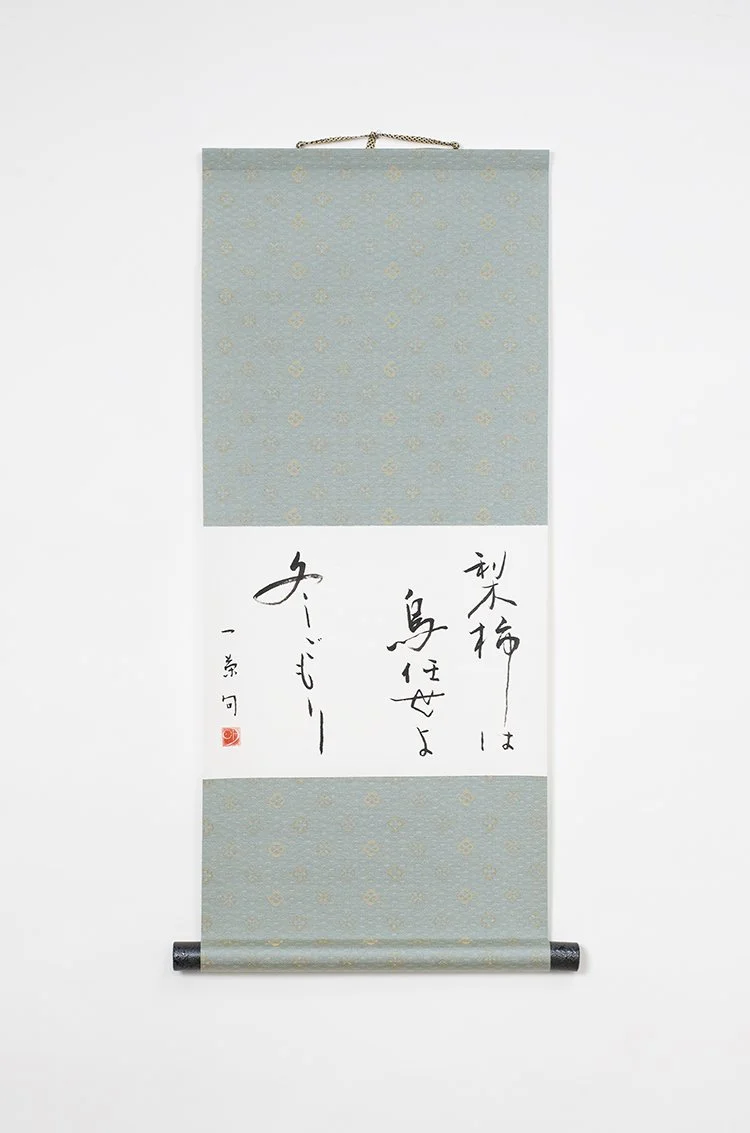 梨柿は
烏任せよ
冬ごもり
一茶句